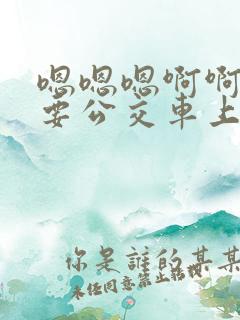 嗯嗯嗯啊啊
要公交車上
你是誰的某某
未任同意禁止轉載